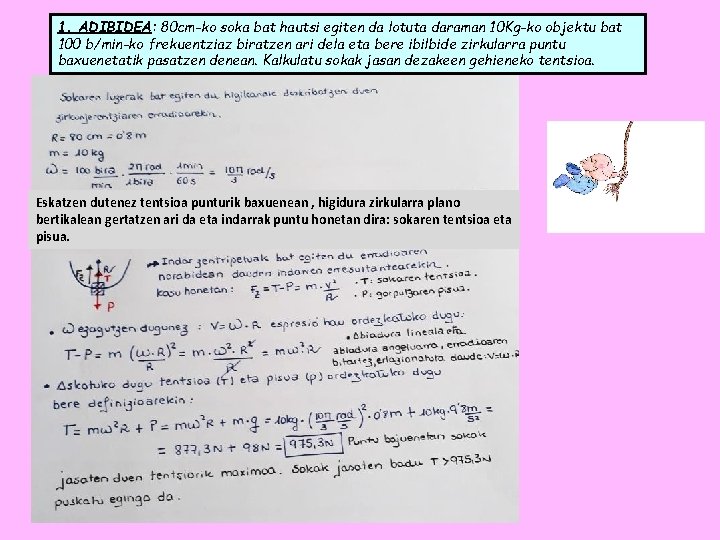 1. ADIBIDEA: 80cm-ko soka bat hautsi egiten da lotuta daraman 10Kg-ko objektu bat
100 b/min-ko frekuentziaz biratzen ari dela eta bere ibilbide zirkularra puntu
baxuenetatik pasatzen denean. Kalkulatu sokak jasan dezakeen gehieneko tentsioa.
Sokaren luzerak bat egiten du higikariak deskribatzen duen
zirkunferentziaren erradioarekin.
R = 80 cm = 0'8 m
m = 10 kg
ω = 100 bira/min · 2π rad/1 bira · 1 min/60 s = 10π/3 rad/s
Eskatzen dutenez tentsioa punturik baxuenean , higidura zirkularra plano
bertikalean gertatzen ari da eta indarrak puntu honetan dira: sokaren tentsioa eta
pisua.
Fz R T P
→ Indar zentripetuak bat egiten du erradioaren
norabidean dauden indarren erresultantearekin.
kasu honetan: Fz = T-P = m · v²/R
· T: sokaren tentsioa.
· P: gorputzaren pisua.
• ω ezagutzen dugunez : v = ω · R espresio hau ordezkatuko dugu:
T-P = m (ω·R)²/R = m · ω² · R²/R = mω² · R
• Abiadura lineala eta
abiadura angeluarra, erradioaren
bitartez, erlazionatuta daude: v=ω·R
• Askatuko dugu tentsioa (T) eta pisua (p) ordezkatuko dugu
bere definizioarekin :
T = mω²R + P = mω²R + m·g = 10kg · (10π/3 rad/s)² · 0'8m + 10kg · 9'8 m/s² =
= 877,3N + 98N = 975,3N Puntu baxuenean sokak
jasaten duen tentsiorik maximoa. Sokak jasaten badu T > 975,3N
puskatu egingo da.